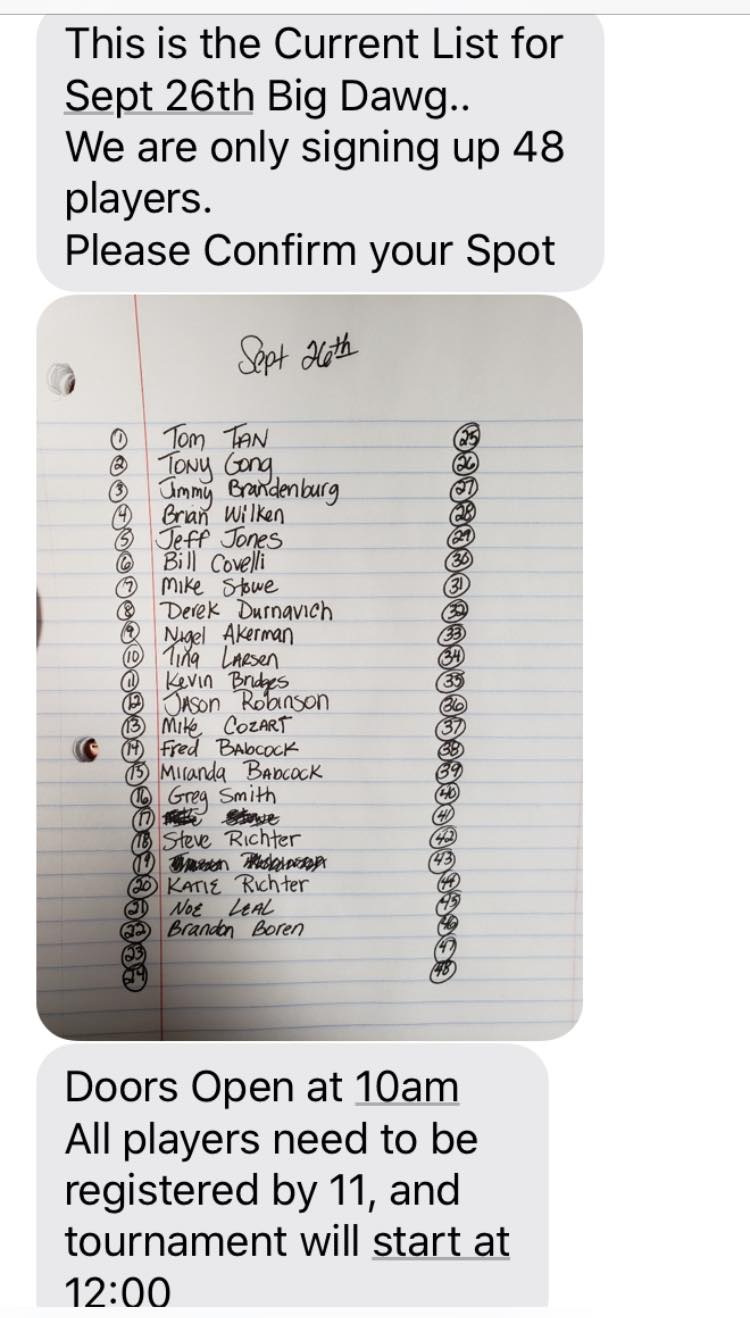 This is the Current List for
Sept 26th Big Dawg..
We are only signing up 48
players.
Please Confirm your Spot
Sept 26th
1 Tom TAN 25
2 TONY Gong 26
3 Jimmy Brandenburg 27
4 Brian Wilken 28
5 Jeff Jones 29
6 Bill Covelli 30
7 Mike Stowe 31
8 Derek Durnavich 32
9 Nigel Akerman 33
10 Tina LARSEN 34
11 Kevin Bridges 35
12 JASON Robinson 36
13 Mike COZART 37
14 Fred BABCOCK 38
15 Miranda BABCOCK 39
16 Greg Smith 40
17 41
18 Steve Richter 42
19 43
20 KATIE Richter 44
21 NOE LEAL 45
22 Brandon Boren 46
23 47
24 48
Doors Open at 10am
All players need to be
registered by 11, and
tournament will start at
12:00